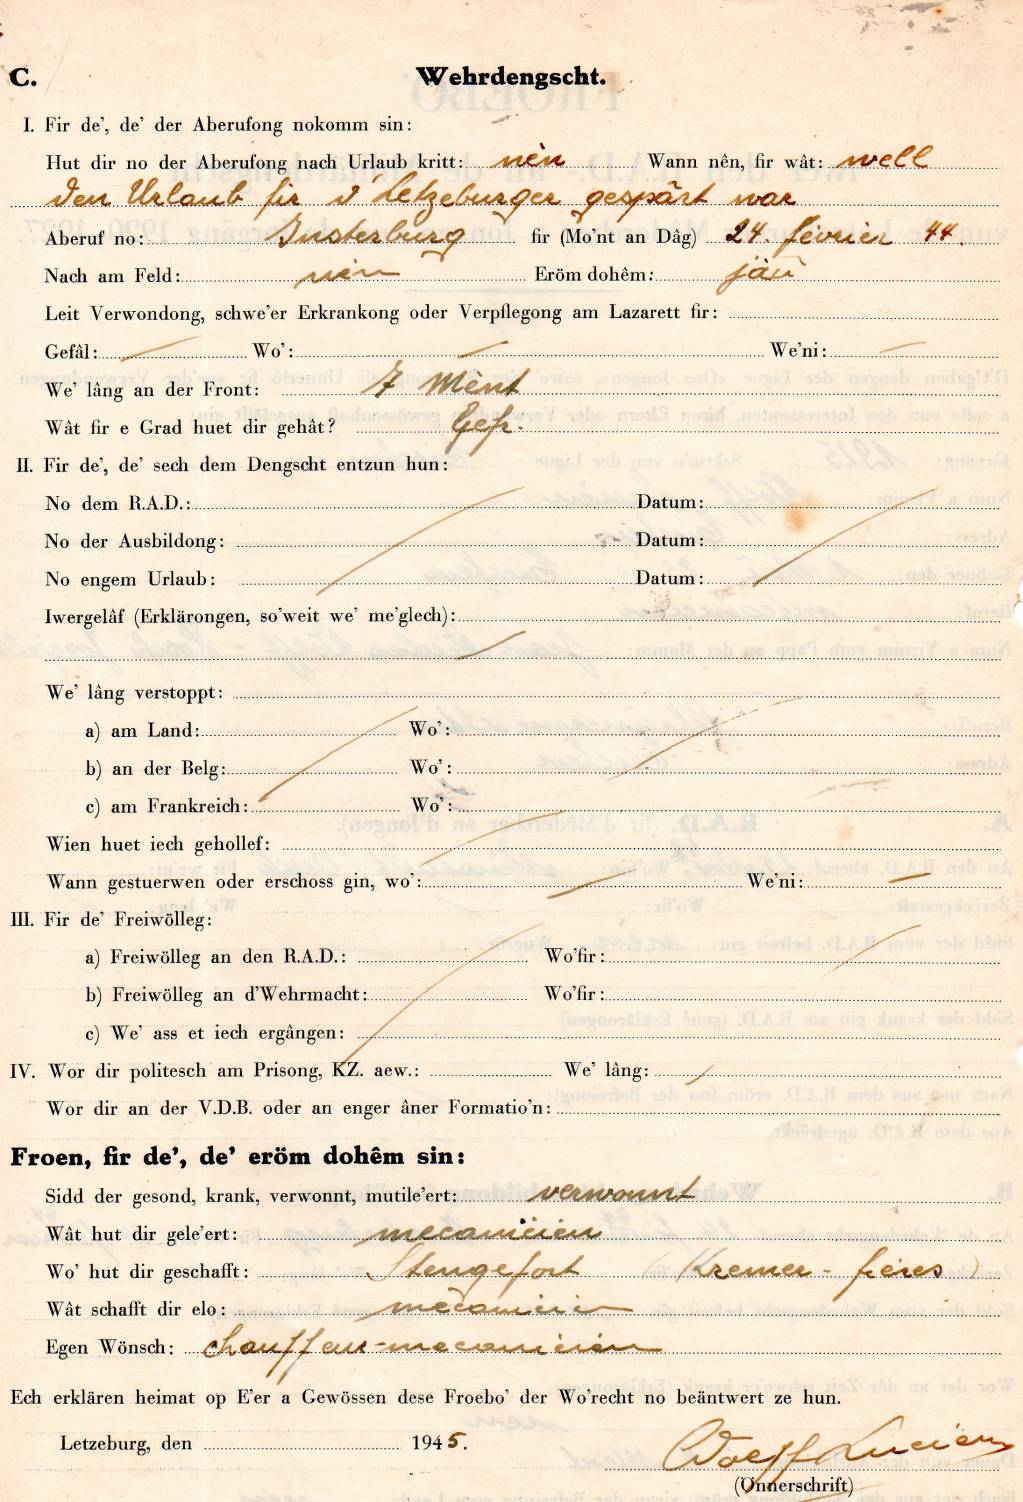 C. Wehrdengscht.
I. Fir de', de' der Aberufong nokomm sin:
Hut dir no der Aberufong nach Urlaub kritt: nèn Wann nên, fir wât: well
den Urlaub fir d' Letzeburger gespârt war
Aberuf no: Insterburg fir (Mo'nt an Dâg) 24. février 44.
Nach am Feld: nèn Eröm dohêm: jäu
Leit Verwondong, schwe'er Erkrankong oder Verpflegong am Lazarett fir:
Gefâl: — Wo': — We'ni: —
We' lâng an der Front: 7 Mènt
Wât fir e Grad huet dir gehât? Gefr.
II. Fir de', de' sech dem Dengscht entzun hun:
No dem R.A.D.: Datum:
No der Ausbildong: Datum:
No engem Urlaub: Datum:
Iwergelâf (Erklärongen, so'weit we' me'glech):
We' lâng verstoppt:
a) am Land: Wo':
b) an der Belg: Wo':
c) am Frankreich: Wo':
Wien huet iech gehollef:
Wann gestuerwen oder erschoss gin, wo': — We'ni: —
III. Fir de' Freiwölleg:
a) Freiwölleg an den R.A.D.: Wo'fir:
b) Freiwölleg an d'Wehrmacht: Wo'fir:
c) We' ass et iech ergângen:
IV. Wor dir politesch am Prisong, KZ. aew.: We' lâng:
Wor dir an der V.D.B. oder an enger âner Formatio'n:
Froen, fir de', de' eröm dohêm sin:
Sidd der gesond, krank, verwonnt, mutile'ert: verwonnt
Wât hut dir gele'ert: mecanicien
Wo' hut dir geschafft: Stengefort (Kremer - frères)
Wât schafft dir elo: mècanicien
Egen Wönsch: chauffeur-mecanicien
Ech erklären heimat op E'er a Gewössen dese Froebo' der Wo'recht no beäntwert ze hun.
Letzeburg, den 1945.
Wolff Lucien
(Önnerschrift)